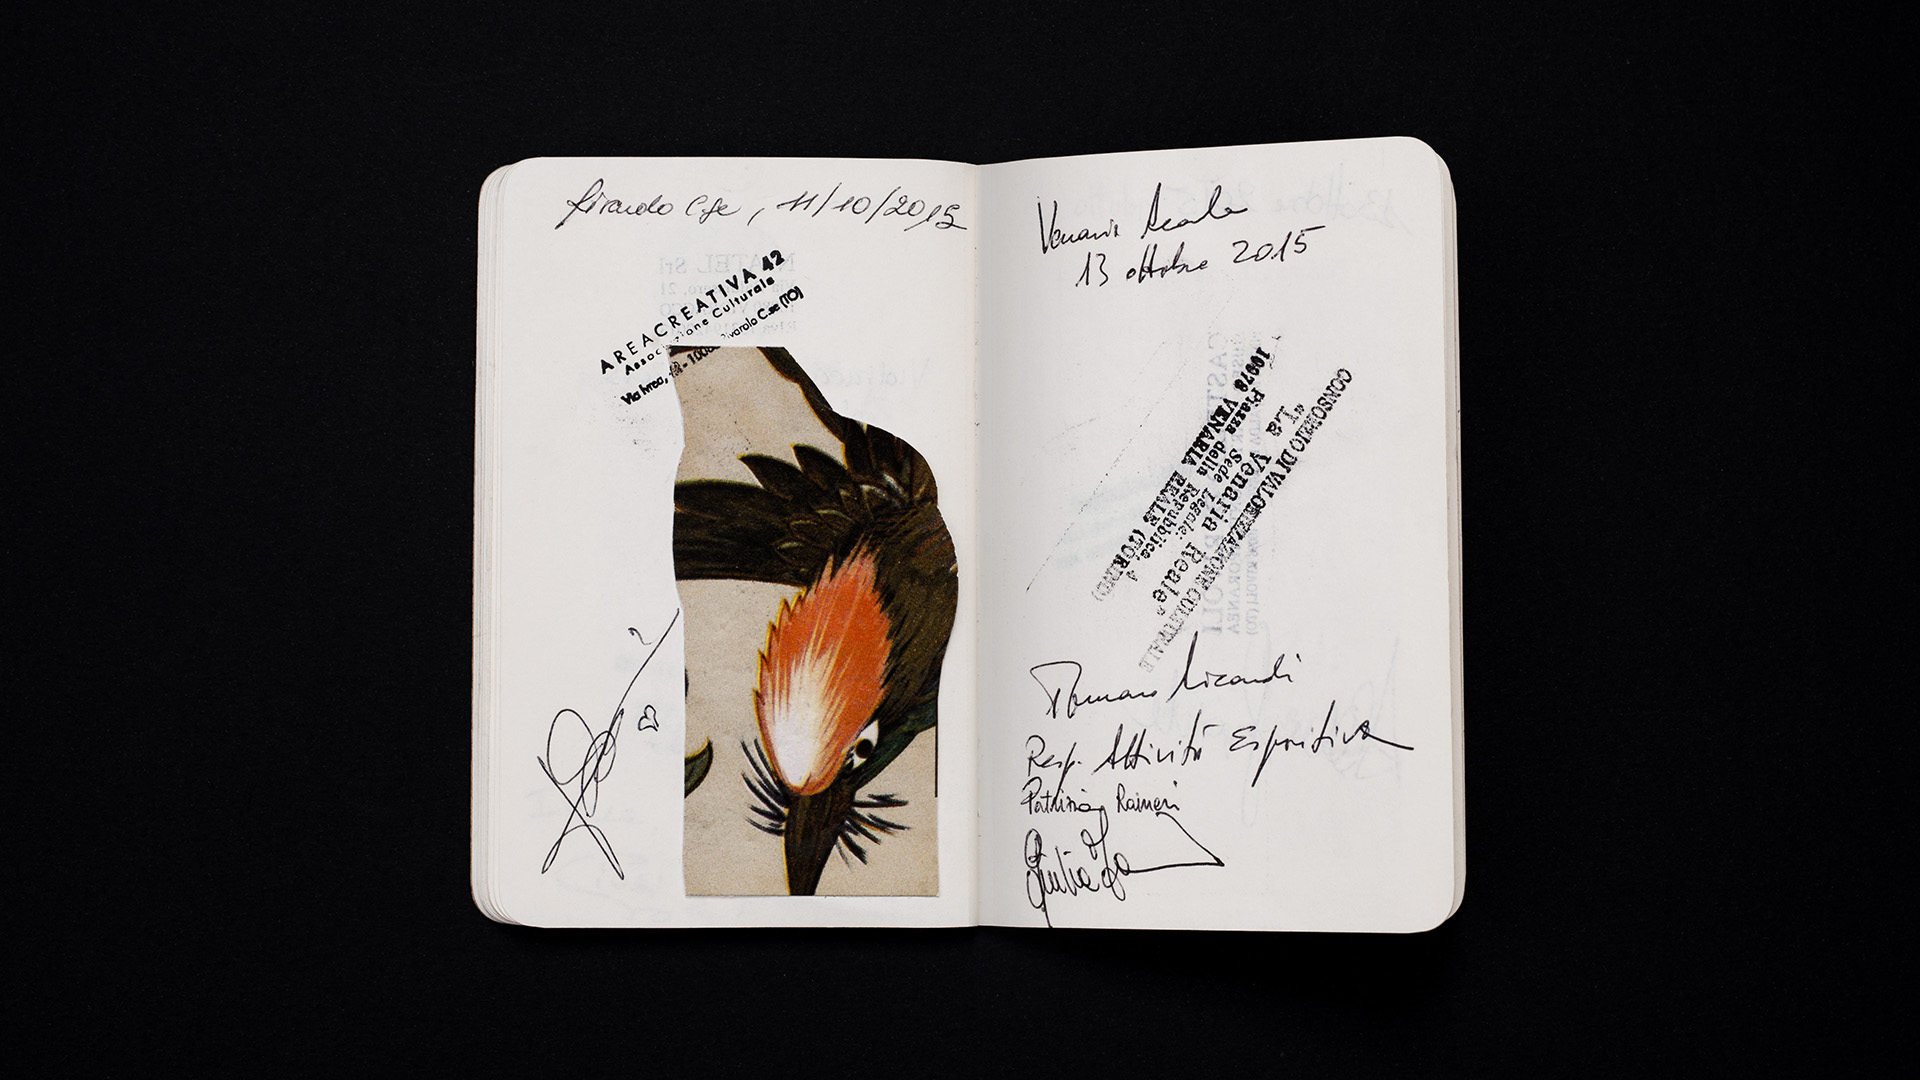 Rivarolo C.se, 11/10/2015
AREACREATIVA 42
Associazione Culturale
Via Ivrea, - 100 Rivarolo C.se (TO)
Venaria Reale
13 ottobre 2015
CONSORZIO DI VALORIZZAZIONE CULTURALE
"La Venaria Reale"
Sede Legale:
Piazza della Repubblica, 4
10078 VENARIA REALE (TORINO)
Resp. Attività Espositiva
Patrizia Raineri
Giulia